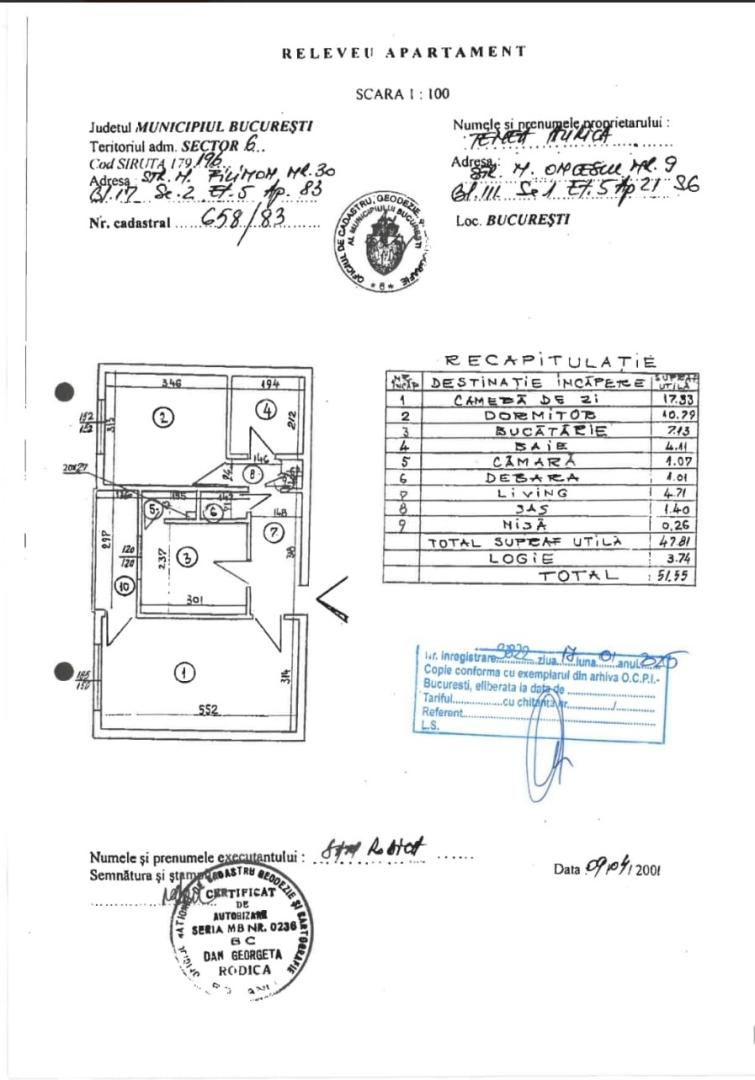 RELEVEU APARTAMENT
SCARA 1 : 100
Judetul MUNICIPIUL BUCUREŞTI
Teritoriul adm. SECTOR 6..
Cod SIRUTA 179.196
Adresa STR. M. FILIMON, NR. 30
Bl. 17 Sc. 2 Et. 5 Ap. 83
Nr. cadastral 658/83
Numele si prenumele proprietarului :
AURICA
Adresa : STR. M. NR. 9
Bl. Sc 1 Et. 5 Ap 21 S6
Loc. BUCUREŞTI
OFICIUL DE CADASTRU, GEODEZIE, ŞI CARTOGRAFIE
AL MUNICIPIULUI BUCUREŞTI
* 6 *
346
194
2
4
212
152
152
313
146
8
20x27
116
195
142
148
5
6
7
297
120
120
237
3
10
301
1
314
552
RECAPITULAŢIE
NR. ÎNCĂP DESTINAŢIE ÎNCĂPERE SUPRAF UTILĂ
1 CAMERĂ DE ZI 17.33
2 DORMITOR 10.79
3 BUCĂTĂRIE 7.13
4 BAIE 4.11
5 CĂMARĂ 1.07
6 DEBARA 1.01
7 LIVING 4.71
8 SAS 1.40
9 NIŞĂ 0,26
TOTAL SUPRAF UTILĂ 47.81
LOGIE 3.74
TOTAL 51.55
Nr. inregistrare 3822 ziua 17 luna 01 anul 2025
Copie conforma cu exemplarul din arhiva O.C.P.I.-
Bucuresti, eliberata la data de
Tariful cu chitanta nr. /
Referent
L.S.
Numele şi prenumele executantului : RODICA
Semnătura şi ştampila
Data 09/04/ 2001
CADASTRU GEODEZIE ŞI CARTOGRAFIE
CERTIFICAT
DE
AUTORIZARE
SERIA MB NR. 0236
BC
DAN GEORGETA
RODICA